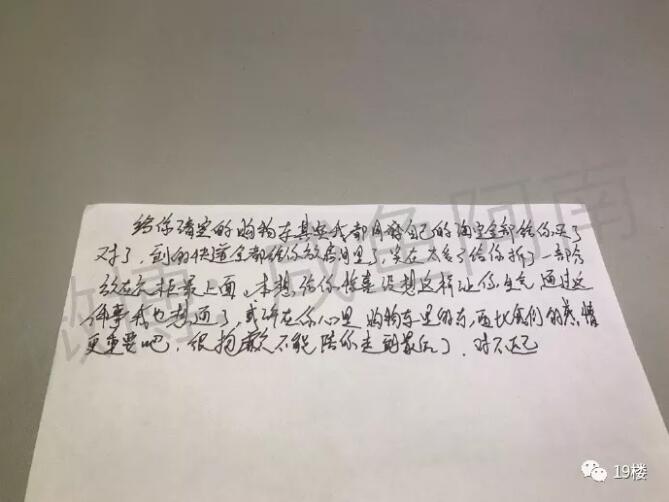 给你清空的购物车其实我都用自己的淘宝全部给你买了
对了，到的快递全都给你放房间里了，实在太多了给你拆了一部分
放在衣柜最上面。本想给你惊喜没想这样让你生气，通过这
件事我也想通了，或许在你心里购物车里的东西比我们的感情
更重要吧，很抱歉不能陪你走到最后了，对不起
微博：咸鱼阿南
19楼